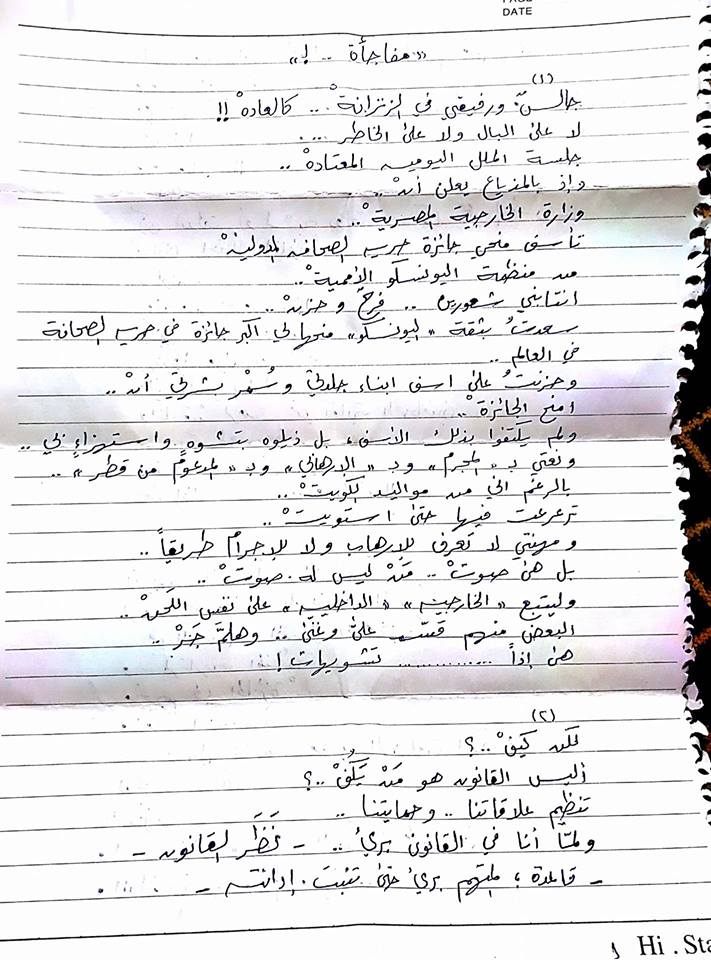 PAGE
DATE
«مفاجأة .. !»
(١)
جالسٌ ورفيقي في الزنزانةْ .. كالعادهْ !!
لا على البال ولا على الخاطر ....
جلسة الملل اليوميه المعتادهْ ..
وإذ بالمذياع يعلن أنْ ..
وزارة الخارجية المصريةْ ..
تأسف منحي جائزة حريه الصحافه الدوليهْ
من منظمة اليونسكو الأمميةْ ..
انتابني شعورين .. فرحٌ وحزنْ ..
سعدتُ بثقة «اليونسكو» منحها لي اكبر جائزة في حريه الصحافة
في العالم ..
وحزنتُ على اسف ابناء جلدتي وسُمْر بشرتي أنْ ..
امنح الجائزةْ ..
ولم يكتفوا بذلك الأسف، بل ذيلوه بتشوه واستهزاءٍ بي ..
ونعتي بـ «المجرم» وبـ «الإرهابي» وبـ «المدعوم من قطر» ..
بالرغم اني من مواليد الكويتْ ..
ترعرعت فيها حتى استويتْ ..
ومهنتي لا تعرف للإرهاب ولا للإجرام طريقاً ..
بل هى صوتْ .. مَنْ ليس له صوتْ ..
وليتبع «الخارجيه» «الداخليه» على نفس اللحنْ ..
البعض منهم علىّ وغنّى .. وهلمّ جَرْ ..
هى إذاً ............ تشويهات !
(٢)
لكن كيفْ ..؟
أليس القانون هو مَنْ ..؟
تنظيم علاقاتنا .. وحمايتنا ..
ولمّا أنا في القانون برئُ .. - نَظَر القانون -
- قاعدة ؛ المتهم برئُ حتى تثبت إدانته -
Hi . Sta